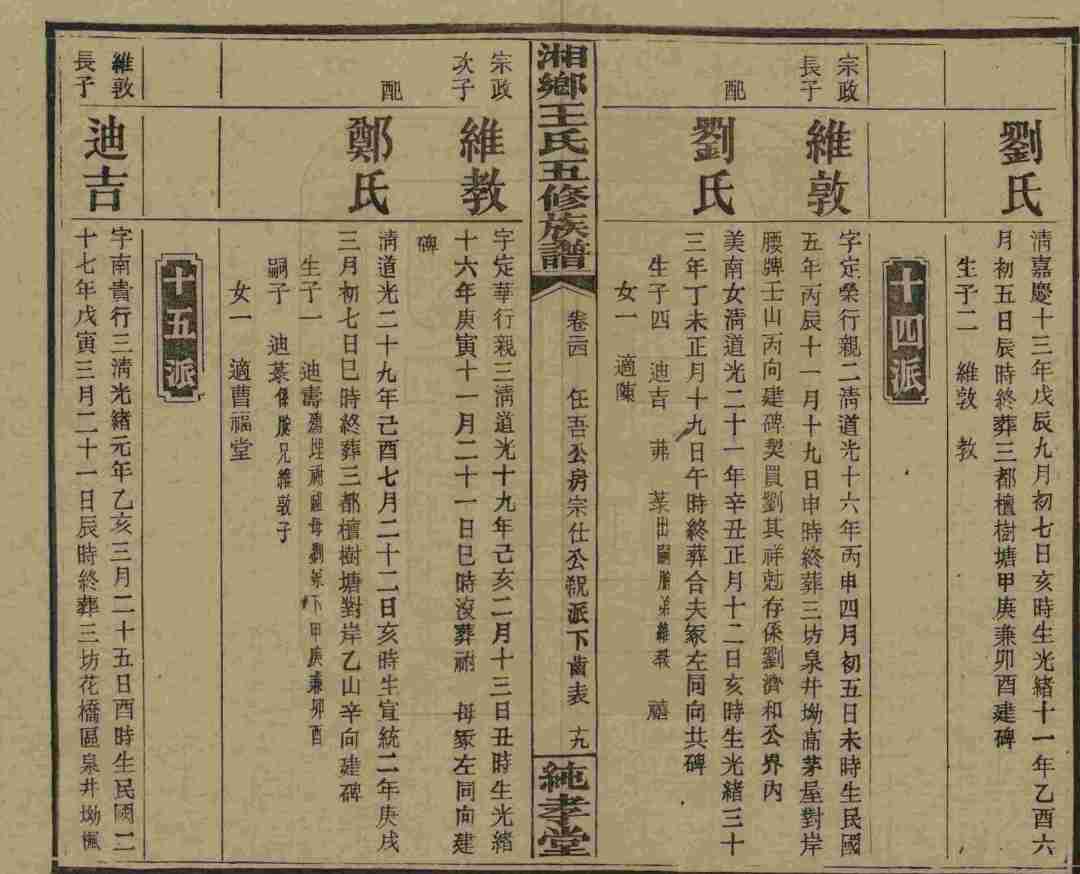 劉氏
清嘉慶十三年戊辰九月初七日亥時生光緒十一年乙酉六
月初五日辰時終葬三都檀樹塘甲庚兼卯酉建碑
生子二 維敦 教
十四派
宗政
長子
維敦
字定榮行親二清道光十六年丙申四月初五日未時生民國
五年丙辰十一月十九日申時終葬三坊泉井坳高茅屋對岸
腰牌壬山丙向建碑契買劉其祥尅存係劉濟和公界內
配
劉氏
美南女清道光二十一年辛丑正月十二日亥時生光緒三十
三年丁未正月十九日午時終葬合夫冢左同向共碑
生子四 迪吉 弗 棻出嗣胞弟維教 禧
女一 適陳
湘鄉王氏五修族譜
卷三四 任吾公房宗仕公祝派下齒表 十九
純孝堂
宗政
次子
維教
字定華行親三清道光十九年己亥二月十三日丑時生光緒
十六年庚寅十一月二十一日巳時沒葬祔 母冢左同向建
碑
配
鄭氏
清道光二十九年己酉七月二十二日亥時生宣統二年庚戌
三月初七日巳時終葬三都檀樹塘對岸乙山辛向建碑
生子一 迪壽殤埋祔祖母劉冢下甲庚兼卯酉
嗣子 迪棻係胞兄維敦子
女一 適曹福堂
十五派
維敦
長子
迪吉
字南貴行三清光緒元年乙亥三月二十五日酉時生民國二
十七年戊寅三月二十一日辰時終葬三坊花橋區泉井坳楓